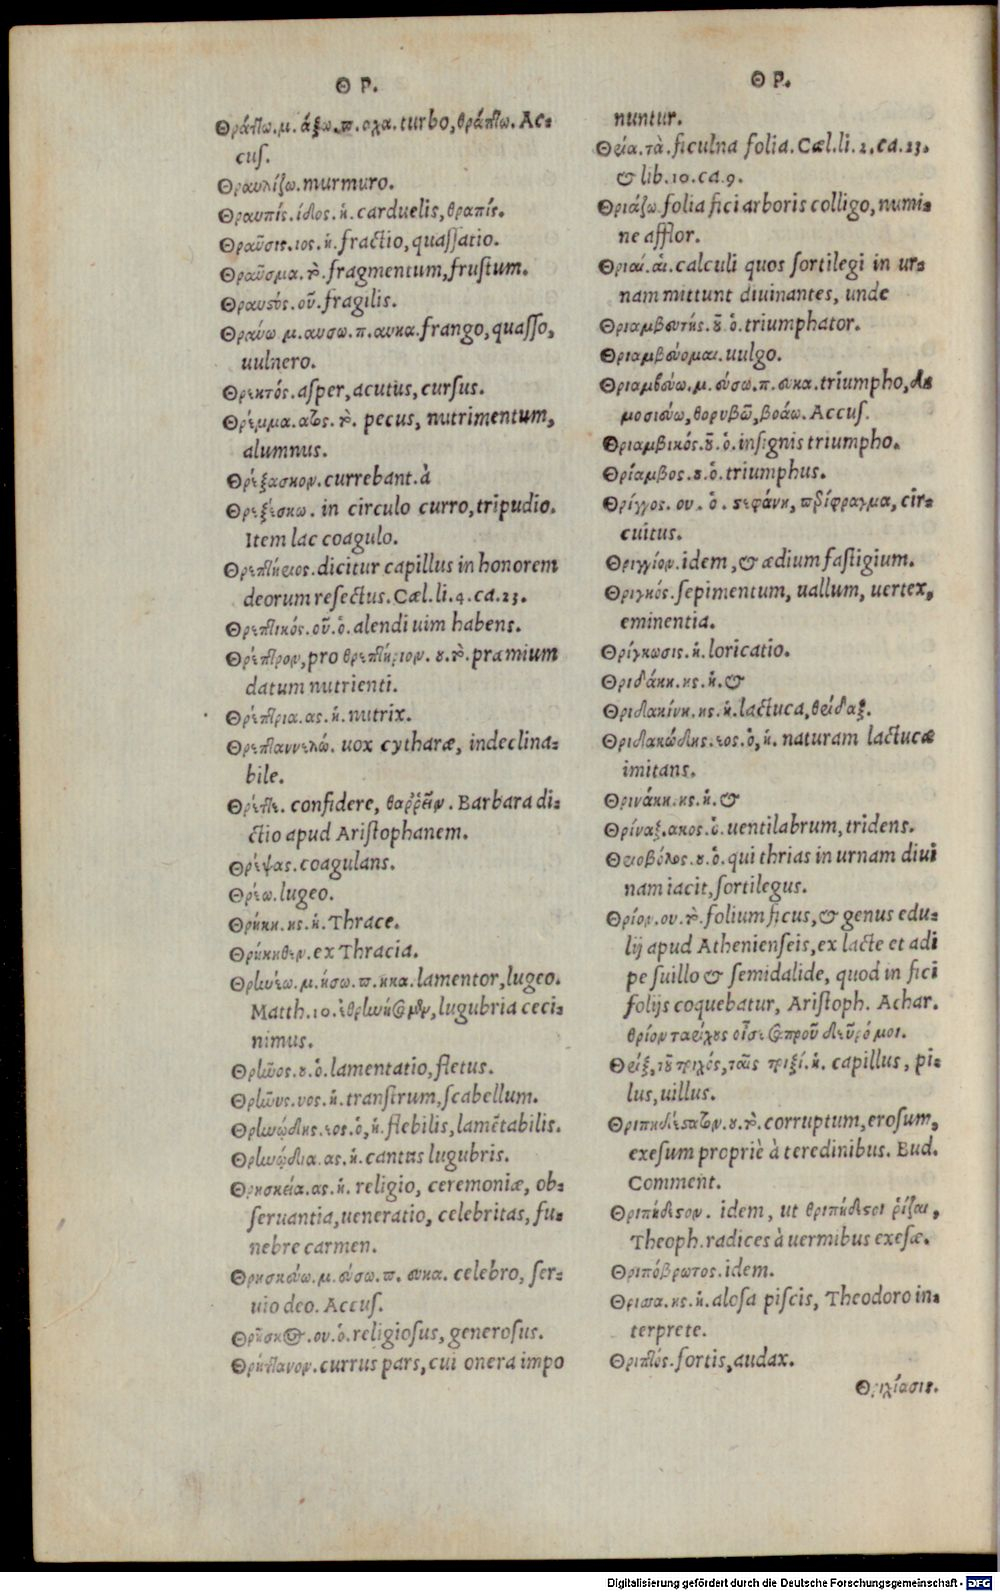 Θ Ρ.
Θράττω.μ.άξω.π.αχα.turbo, θράττω. Ac-
cuſ.
Θραυλίζω.murmuro.
Θραυπίς.ίδος.ἡ.carduelis, θραπίς.
Θραῦσις.ιος.ἡ.fractio, quaſſatio.
Θραῦσμα.τὸ.fragmentum, fruſtum.
Θραυςός.οῦ.fragilis.
Θραύω.μ.αυσω.π.αυκα.frango, quaſſo,
uulnero.
Θρεκτός.aſper, acutus, curſus.
Θρέμμα.ατος.τὸ. pecus, nutrimentum,
alumnus.
Θρέξασκον.currebant.à
Θρεξέσκω. in circulo curro, tripudio.
Item lac coagulo.
Θρεπτήριος.dicitur capillus in honorem
deorum reſectus. Cæl.li.4.ca.23.
Θρεπτικός.οῦ.ὁ.alendi uim habens.
Θρέπτρον, pro θρεπτήριον.ου.τὸ.præmium
datum nutrienti.
Θρέπτρια.ας.ἡ.nutrix.
Θρεττανελώ. uox cytharæ, indeclina-
bile.
Θρέττε. confidere, θαῤῥεῖν. Barbara di-
ctio apud Ariſtophanem.
Θρέψας.coagulans.
Θρέω.lugeo.
Θρήκη.ης.ἡ.Thrace.
Θρήκηθεν.ex Thracia.
Θρηνέω.μ.ήσω.π.ηκα.lamentor, lugeo.
Matth.10.ἐθρηνήσαμεν, lugubria ceci-
nimus.
Θρῆνος.ου.ὁ.lamentatio, fletus.
Θρῆνυς.υος.ἡ.tranſtrum, ſcabellum.
Θρηνώδης.εος.ὁ,ἡ.flebilis, lamētabilis.
Θρηνῳδία.ας.ἡ.cantus lugubris.
Θρησκεία.ας.ἡ. religio, ceremoniæ, ob-
ſeruantia, ueneratio, celebritas, fu-
nebre carmen.
Θρησκεύω.μ.εύσω.π. ευκα. celebro, ſer-
uio deo. Accuſ.
Θρῆσκος.ου.ὁ.religioſus, generoſus.
Θρήττανον.currus pars, cui onera impo
Θ Ρ.
nuntur.
Θρῖα.τὰ.ficulna folia. Cæl.li.2.ca.23.
& lib.10.ca.9.
Θριάζω.folia fici arboris colligo, numi-
ne afflor.
Θριαί.αἱ.calculi quos ſortilegi in ur-
nam mittunt diuinantes, unde
Θριαμβευτής.οῦ.ὁ.triumphator.
Θριαμβεύομαι.uulgo.
Θριαμβεύω.μ.εύσω.π.ευκα.triumpho, δη
μοσιεύω, θορυβῶ, βοάω. Accuſ.
Θριαμβικός.οῦ.ὁ.inſignis triumpho.
Θρίαμβος.ου.ὁ.triumphus.
Θρίγγος.ου.ὁ. ςεφάνη, περίφραγμα, cir-
cuitus.
Θριγγίον.idem, & ædium faſtigium.
Θριγκός.ſepimentum, uallum, uertex,
eminentia.
Θρίγκωσις.ἡ.loricatio.
Θριδάκη.ης.ἡ.&
Θριδακίνη.ης.ἡ.lactuca, θρίδαξ.
Θριδακώδης.εος.ὁ,ἡ. naturam lactucæ
imitans.
Θρινάκη.ης.ἡ.&
Θρίναξ.ακος.ὁ.uentilabrum, tridens.
Θριοβόλος.ου.ὁ.qui thrias in urnam diui
nam iacit, ſortilegus.
Θρίον.ου.τὸ.folium ficus, & genus edu-
lij apud Athenienſeis, ex lacte et adi
pe ſuillo & ſemidalide, quod in fici
folijs coquebatur, Ariſtoph. Achar.
θρίον ταρίχους οἶσε σαπροῦ δεῦρό μοι.
Θρίξ, τοῦ τριχός, ταῖς τριξί.ἡ. capillus, pi-
lus, uillus.
Θριπηδέςατον.ου.τὸ.corruptum, eroſum,
exeſum propriè à teredinibus. Bud.
Comment.
Θριπήδεςον. idem, ut θριπήδεςοι ῥίζαι,
Theoph.radices à uermibus exeſæ.
Θριπόβρωτος.idem.
Θρισσα.ης.ἡ.aloſa piſcis, Theodoro in-
terprete.
Θριπτός.fortis, audax.
Θριχίασις.
Digitalisierung gefördert durch die Deutsche Forschungsgemeinschaft - DFG